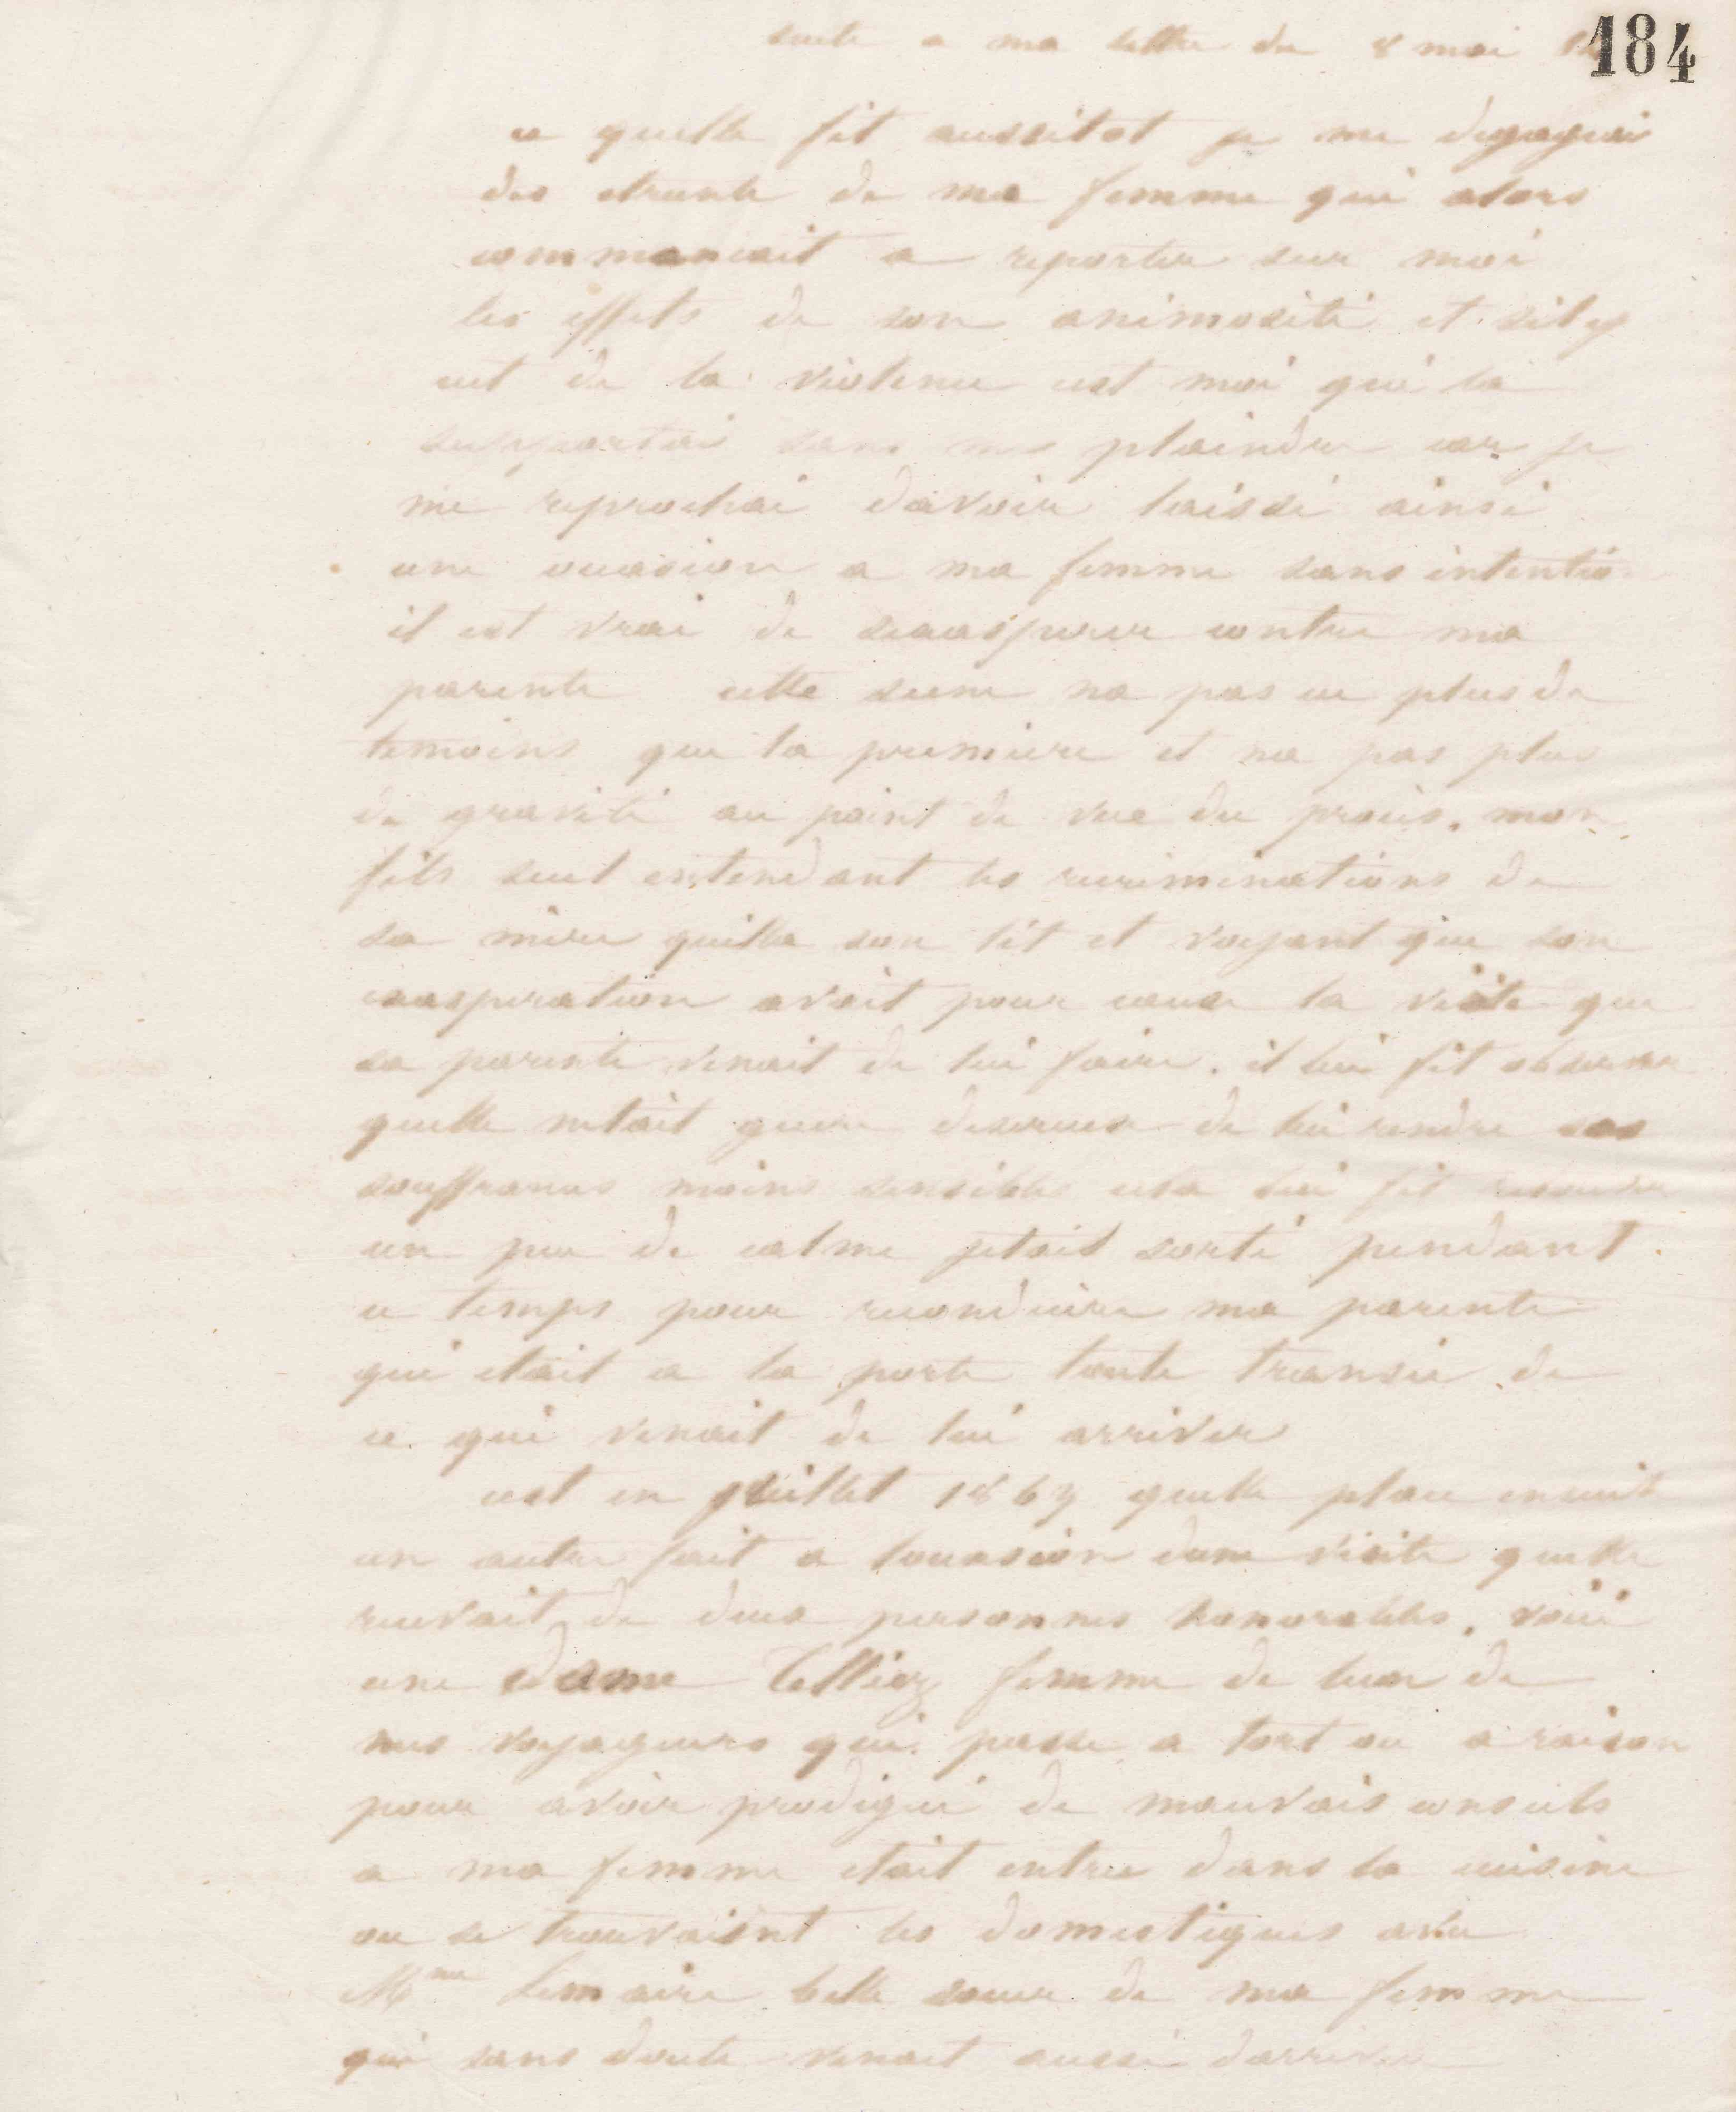 suite a ma lettre du 8 mai
184
ce quelle fit aussitot je me degageai
des etreinte de ma femme qui alors
commancait a reporter sur moi
les effets de son animosité et sil y
eut de la violence cest moi qui la
supportai sans me plaindre car je
me reprochai davoir laissé ainsi
une occasion a ma femme sans intentio
il est vrai de sexasperer contre ma
parente cette scene na pas eu plus de
temoins que la premiere et na pas plus
de gravité au point de vue du procès. mon
fils seul entendant les recriminations de
sa mère quitta son lit et voyant que son
exasperation avait pour cause la visite que
sa parente venait de lui faire. il lui fit observer
quelle netait guere desireuse de lui rendre ses
souffrances moins sensibles cela lui fit
un peu de calme jetait sorti pendant
ce temps pour reconduire ma parente
qui etait a la porte toute transie de
ce qui venait de lui arriver
cest en juillet 1869 quelle place ensuite
un autre fait a loccasion dune visite quelle
recevait de deux personnes honorables. voici
une dame Telliez femme de lun de
mes voyageurs qui passe a tort ou a raison
pour avoir prodigué de mauvais conseils
a ma femme etait entree dans la cuisine
ou se trouvaient les domestiques avec
Mme Lemaire belle soeur de ma femme
qui sans doute venait aussi darriver